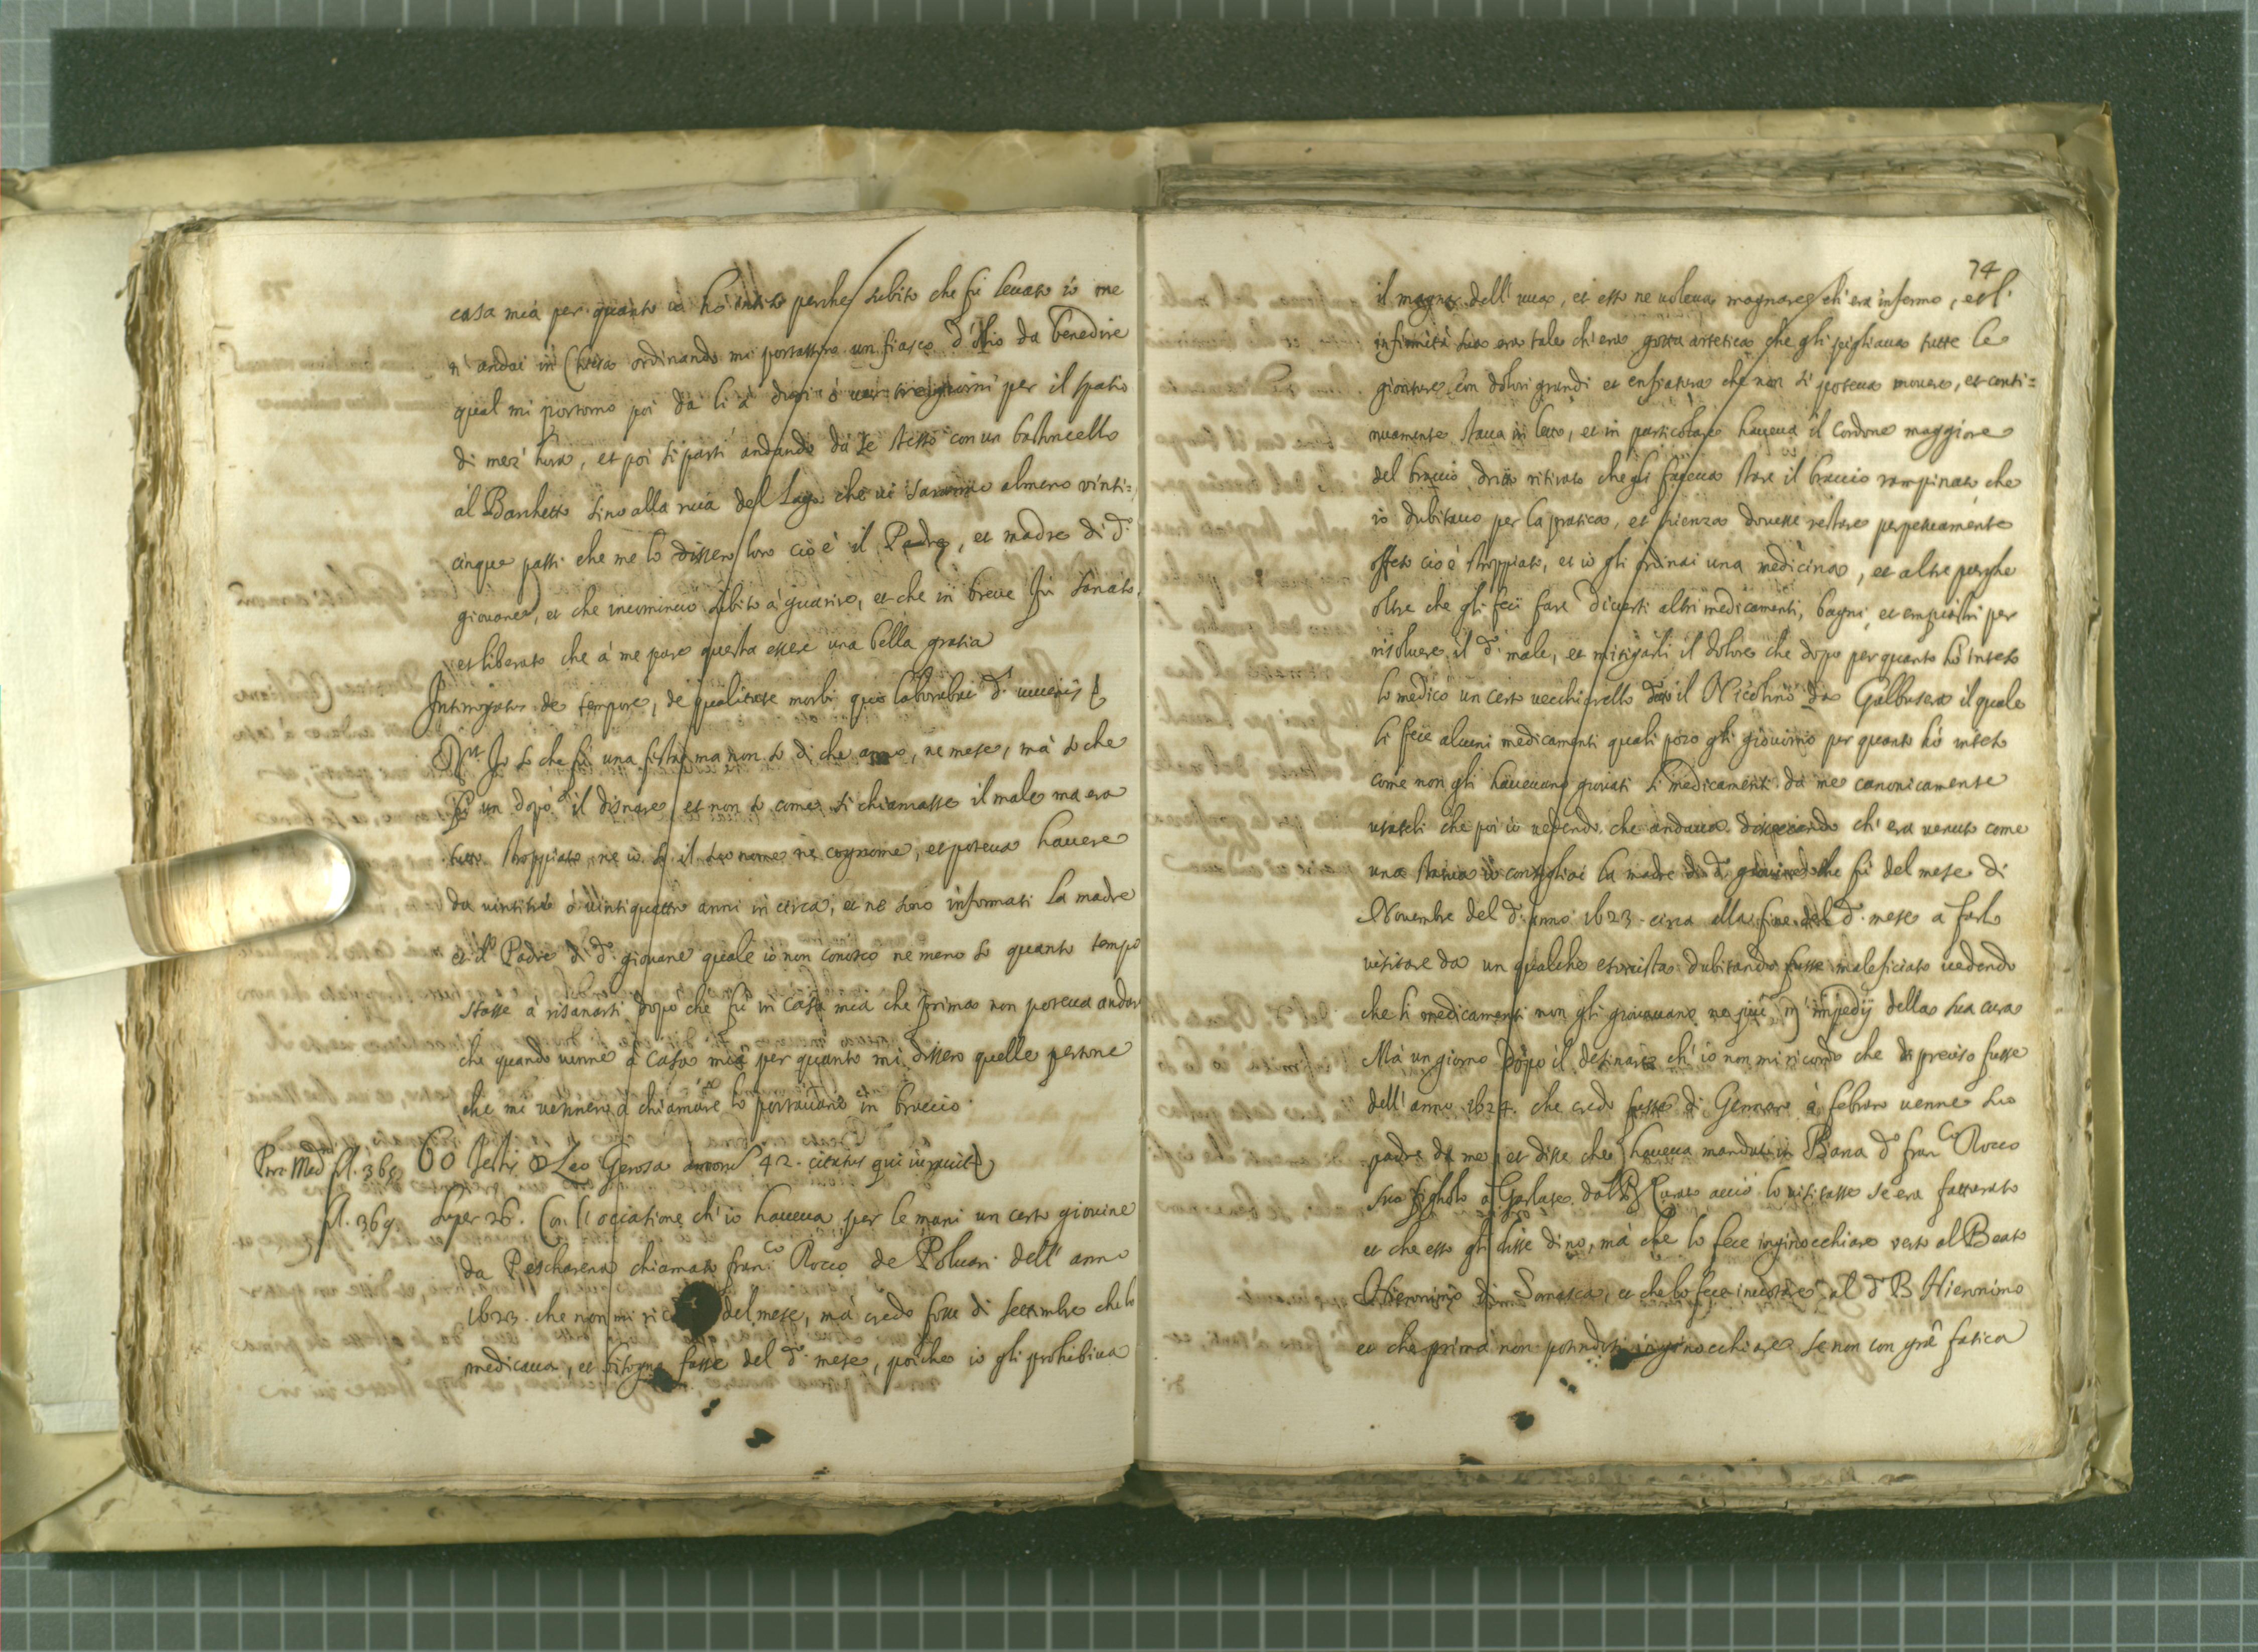 casa mia per quanto io hò inteso perche subito che fù levato io me
n'andai in Chiesa ordinando mi portassero un fiasco d'oglio da benedire
qual mi portorno poi da li à dui ò ver tre giorni per il spatio
di mez' hora, et poi si partì andando da se stesso con un bastoncello
al Barchetto sino alla riva del Lago che vi saranno almeno vinti=
cinque passi che me lo dissero loro cio è il Padre, et madre di d.º
giovane, et che incominciò subito à guarire, et che in breve fù sanato,
et liberato che à me pare questa essere una bella gratia
Interrogatus de tempore, de qualitate morbi quo laborabat d.s iuvenis
R.it Io so che fù una festa ma non so di che anno, ne mese, mà so che
fù un dopò il disnare et non so come si chiamasse il male ma era
tutto stroppiato ne io sò il suo nome ne cognome, et poteva havere
da vintitrè ò vintiquattro anni in circa, et ne sono informati la madre
et il Padre di d.º giovane quale io non conosco ne meno so quanto tempo
stasse à risanarsi dopò che fù in casa mia che prima non poteva andar
che quando venne à casa mia per quanto mi dissero quelle persone
che mi vennero à chiamare lo portavano in braccio
Proc. Med. fl. 369 60 testis D. Leo Gerosa annor. 42. citatus qui iuravit
fl. 369. super 26. Con l'occasione ch'io haveva per le mani un certo giovine
da Pescharena chiamato Fran.co Rocco de Polvari dell'anno
1623. che non mi ric del mese, mà credo fosse di settembre che lo
medicava, et bisogna fusse del d.º mese, poiche io gli prohibiva
74
il magnar dell'uva, et esso ne voleva magnare ch'era infermo, et l'
infirmità sua era tale ch'era gotta artetica che gli pigliava tutte le
gionture con dolori grandi et enfiatura che non si poteva movere, et conti=
nuamente stava in letto, et in particolare haveva il cordone maggiore
del braccio drio ritirato che gli faceva stare il braccio rampinato che
io dubitavo per la pratica, et scienza dovesse restare perpetuamente
offeso cio è stroppiato, et io gli ordinai una medicina, et altre purghe
oltre che gli feci fare diversi altri medicamenti, bagni, et empiastri per
risolvere il d.º male, et mitigarli il dolore che dopo per quanto hò inteso
lo medicò un certo vecchiarello d.to il Nicolino da Galbusera il quale
li fece alcuni medicamenti quali poco gli giovorno per quanto hò inteso
come non gli havevano giovati li medicamenti da me canonicamente
usateli che poi io vedendo che andava disseccando ch'era venuto come
una statua io consigliai la madre di d.º giovine che fù del mese di
Novembre del d.º anno 1623. circa alla fine del d.º mese a farlo
visitare da un qualche esorcista dubitando fusse maleficiato vedendo
che li medicamenti non gli giovavano ne più m'impedij della sua cura
Mà un giorno dopò il desinare ch'io non mi ricordo che di preciso fusse
dell'anno 1624. che credo fusse di Gennaro ò febraro venne suo
padre da me et disse che haveva mandato in Barca d.º Fran.co Rocco
suo figliolo à Garlate dal P. Curato acciò lo visitasse se era fatturato
et che esso gli disse di no, mà che lo fece inginocchiare verso al Beato
Hieronimo di Somasca, et che lo fece invotare al d.º B. Hieronimo
et che prima non potendosi inginocchiare se non con grã fatica